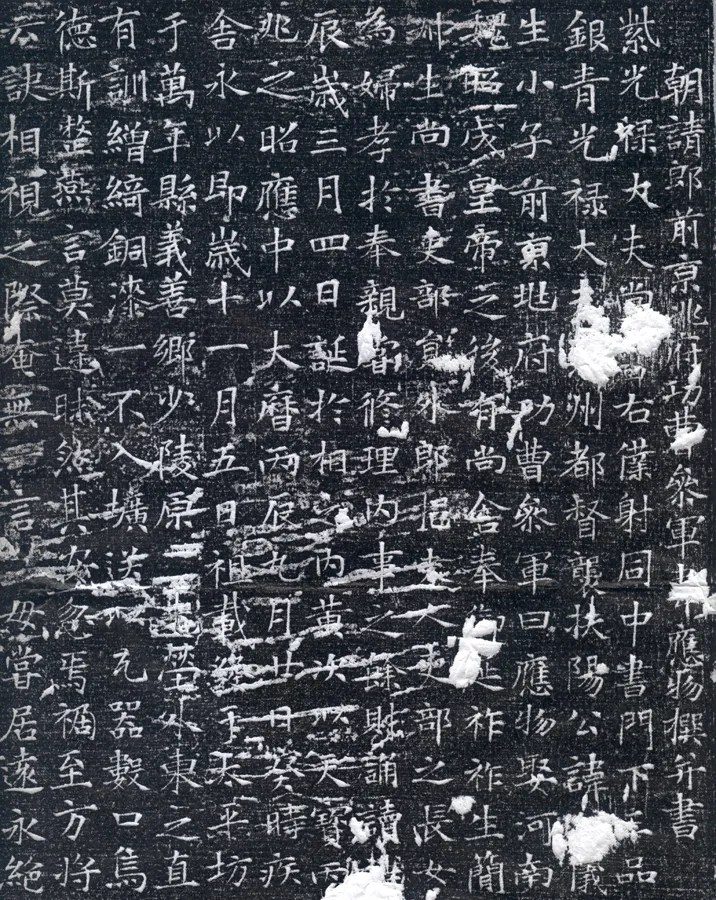 朝請郎前京兆府功曹參軍韋應物撰并書
紫光祿大夫尚書右僕射同中書門下三品
銀青光祿大夫州都督襲扶陽公諱儀
生小子前京兆府功曹參軍曰應物娶河南
魏昭成皇帝之後有尚舍奉御延祚祚生簡
州生尚書吏部員外郎挹夫人吏部之長女
為婦孝於奉親嘗修理內事之餘則誦讀
辰歲三月四日誕於相之內黃次以天寶丙
兆之昭應中以大曆丙辰九月廿日癸時疾
舍永以即歲十一月五日祖載終于太平坊
于萬年縣義善鄉少陵原先塋外東之直
有訓繒綺銅漆一不入壙送以瓦器數口烏
德斯整燕言莫違昧然其安忽焉禍至方將
云訣相視之際奄無一言母嘗居遠永絕